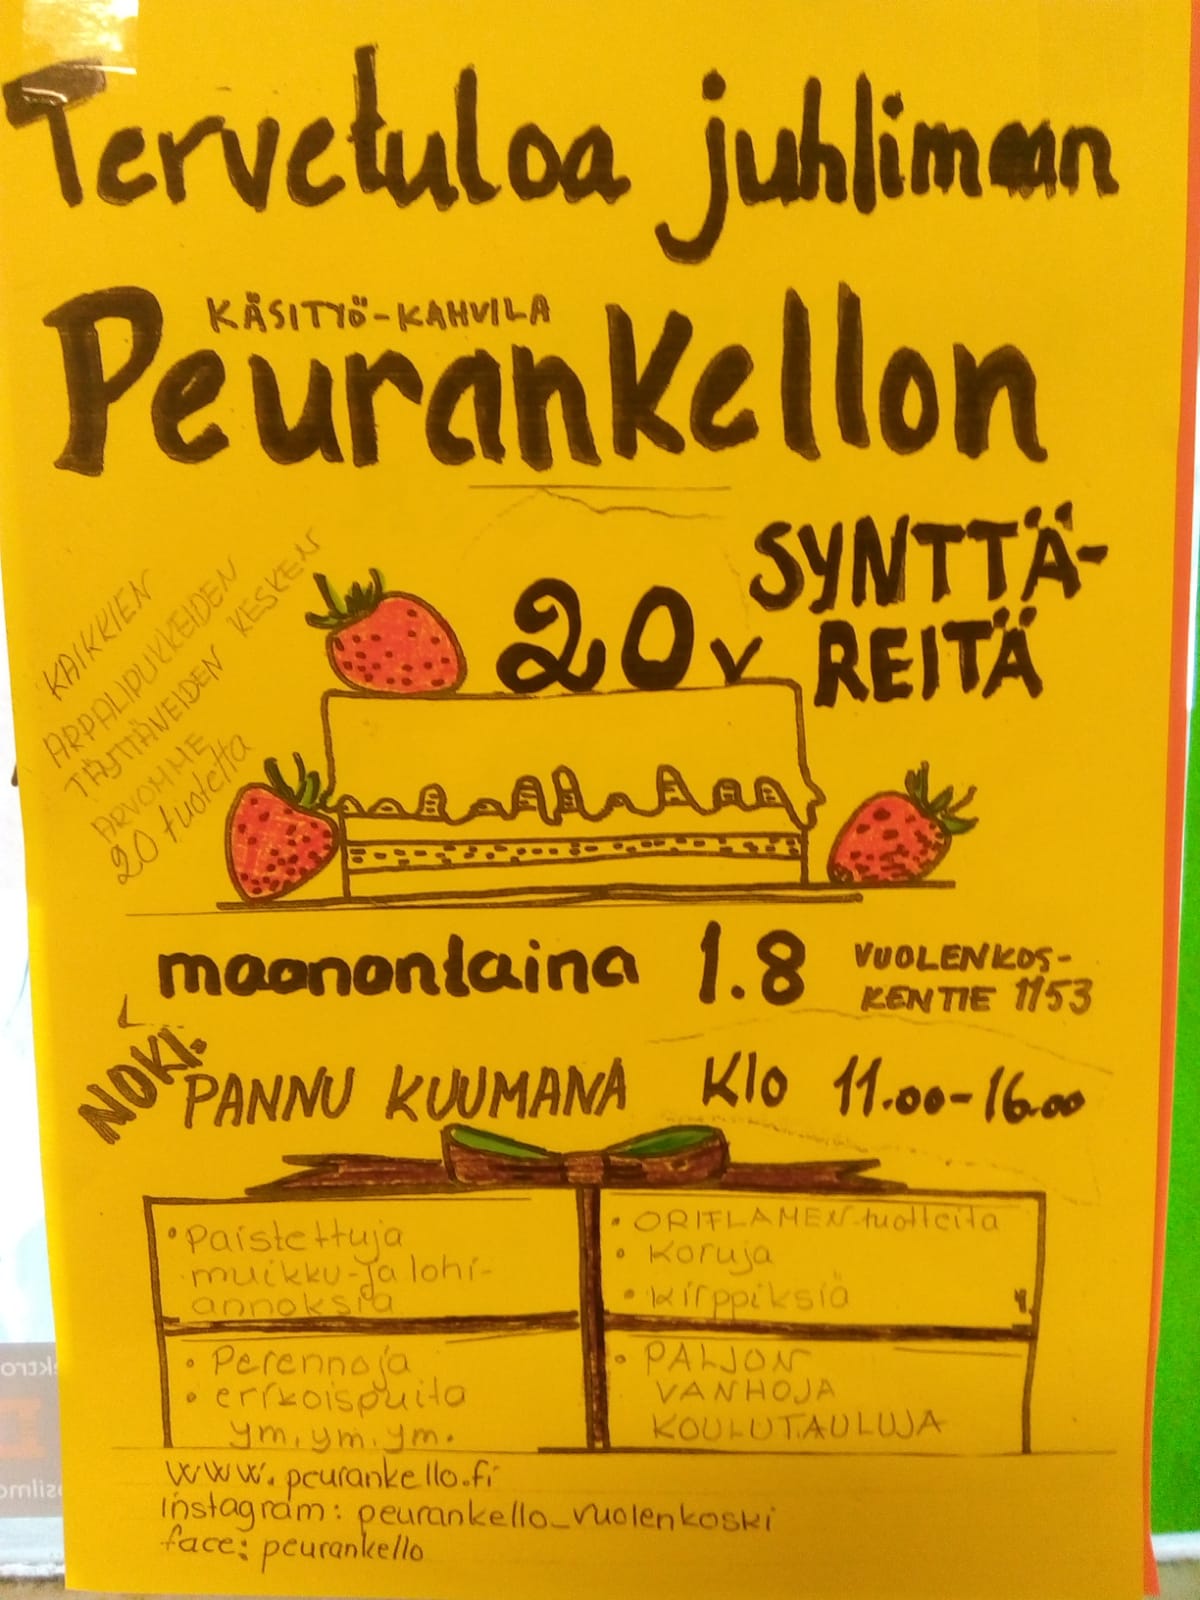 Tervetuloa juhlimaan
KÄSITYÖ-KAHVILA
Peurankellon
20v SYNTTÄ-
REITÄ
KAIKKIEN
ARPALIPUKKEIDEN
TÄYTTÄNEIDEN KESKEN
ARVOMME
20 tuotetta
maanantaina 1.8
VUOLENKOS-
KENTIE 1153
NOKI-
PANNU KUUMANA Klo 11.00-16.00
• Paistettuja
muikku- ja lohi-
annoksia
• ORIFLAMEN-tuotteita
• Koruja
• Kirppiksiä
• Perennoja
• erikoispuita
ym. ym. ym.
• PALJON
VANHOJA
KOULUTAULUJA
www.peurankello.fi
instagram: peurankello_vuolenkoski
face: peurankello